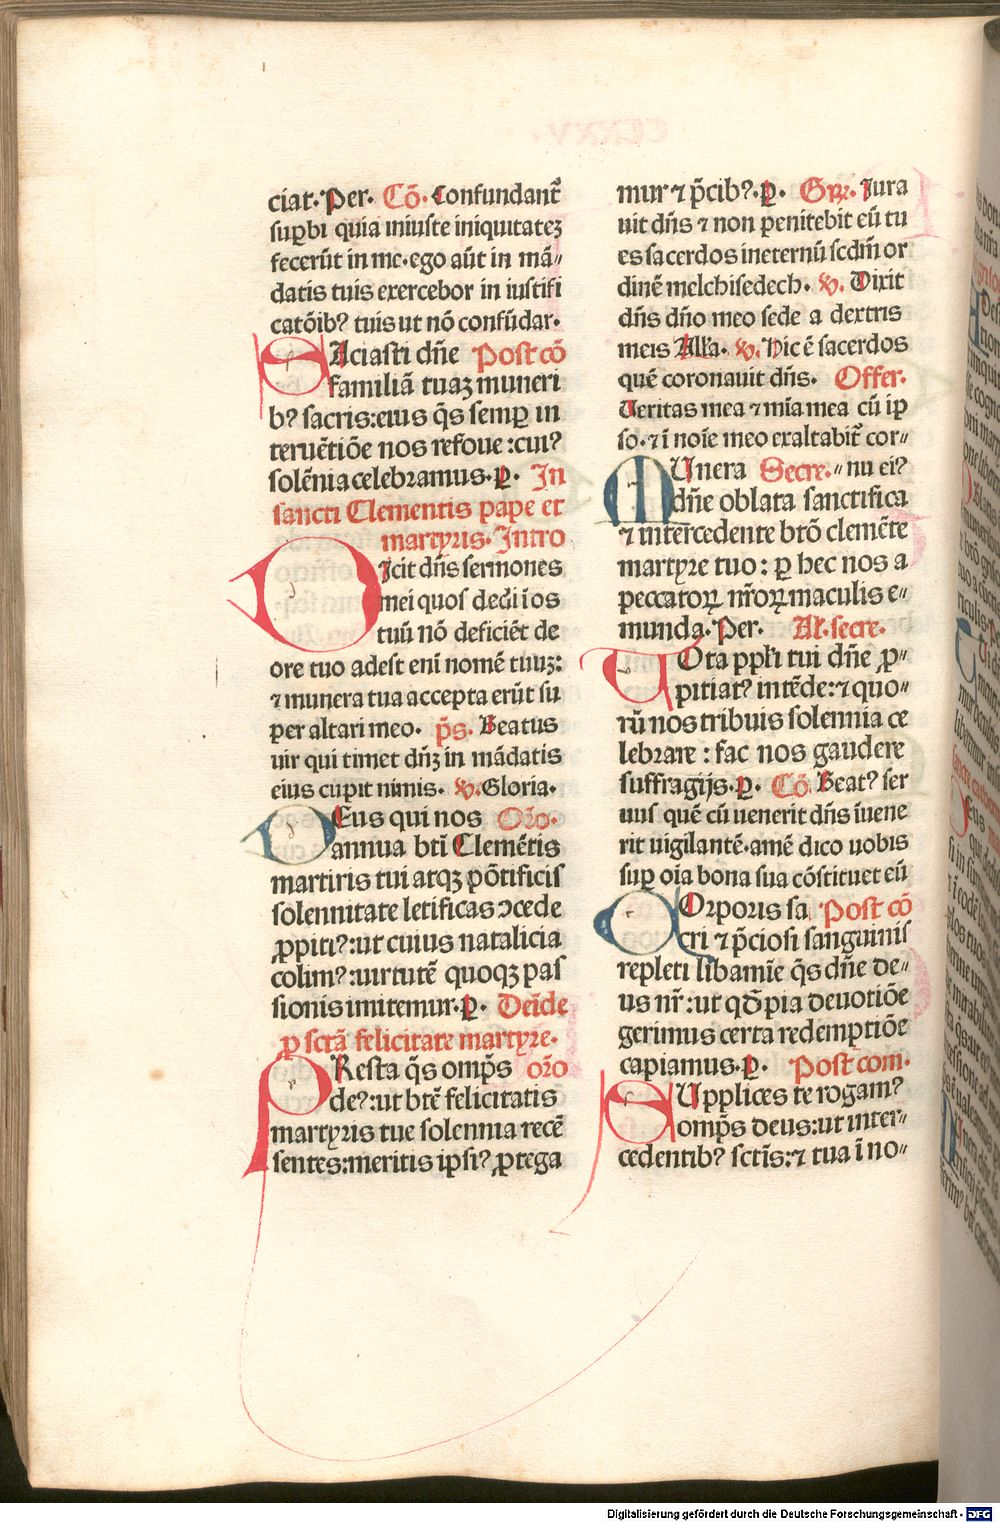 ciat. Per. Cō. Confundant᷑
suꝑbi quia iniuste iniquitateꝫ
fecerūt in me. ego aūt in mā〃
datis tuis exercebor in iustifi
catōib? tuis ut nō confūdar.
SAciasti dn̄e Post cō
familiā tuaꝫ muneri
b? sacris: eius q̄s semꝑ in
teruētiōe nos refoue: cui?
solēnia celebramus. ꝑ. In
sancti Clementis pape et
martyris. Intro
DIcit dn̄s sermones
mei quos dedi ī os
tuū nō deficiēt de
ore tuo adest enī nomē tuuꝫ:
⁊ munera tua accepta erūt su
per altari meo. p̄s. Beatus
uir qui timet dn̄ꝫ in mādatis
eius cupit nimis. v. Gloria.
DEus qui nos Orō.
annua bt̄i Clemētis
martiris tui atqꝫ pōtificis
solennitate letificas ↄcede
ꝓpiti?: ut cuius natalicia
colim?: uirtutē quoqꝫ pas
sionis imitemur. ꝑ. Deīde
ꝓ sctā felicitate martyre.
PResta q̄s omp̄s orō
de?: ut btē felicitatis
martyris tue solennia recē
sentes: meritis ipsi? ꝓtega
mur ⁊ p̄cib?. ꝑ. Gr̄. Iura
uit dn̄s ⁊ non penitebit eū tu
es sacerdos ineternū scdm̄ or
dinē melchisedech. v. Dixit
dn̄s dn̄o meo sede a dextris
meis Alla. v. Hic ē sacerdos
quē coronauit dn̄s. Offer.
Ueritas mea ⁊ mīa mea cū ip
so. ⁊ ī noīe meo exaltabit᷑ cor〃
MUnera Secre. 〃nu ei?
dn̄e oblata sanctifica
⁊ intercedente btō clemēte
martyre tuo: ꝑ hec nos a
peccatoꝝ nr̄oꝝ maculis e〃
munda. Per. Al. secre.
UOta ppl̄i tui dn̄e ꝓ〃
pitiat? intēde: ⁊ quo〃
rū nos tribuis solennia ce
lebrare: fac nos gaudere
suffragijs. ꝑ. Cō. Beat? ser
uus quē cū uenerit dn̄s īuene
rit uigilantē. amē dico uobis
suꝑ oīa bona sua cōstituet eū
COrporis sa Post cō
cri ⁊ p̄ciosi sanguinis
repleti libamīe q̄s dn̄e de〃
us nr̄: ut qd̄ pia deuotiōe
gerimus certa redemptiōe
capiamus. ꝑ. Post com.
SUpplices te rogam?
omp̄s deus: ut inter〃
cedentib? sctīs: ⁊ tua ī no〃
Digitalisierung gefördert durch die Deutsche Forschungsgemeinschaft - DFG